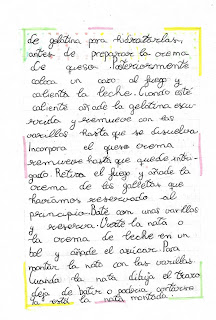 de gelatina para hidratarlas,
antes de preparar la crema
de queso. Posteriormente
coloca un cazo al fuego y
calienta la leche. Cuando esté
caliente añade la gelatina escu-
rrida y remueve con las
varillas hasta que se disuelva
Incorpora el queso crema
remueve hasta que quede inte-
grado. Retira el fuego y añade la
crema de las galletas que
habíamos reservado al
principio. Bate con unas varillas
y reserva. Vierte la nata o
la crema de leche en un
bol y añade el azúcar. Para
montar la nata con las varillas.
Cuando la nata dibuja el trazo
deja de batir o podría cortarse
ya está la nata montada.